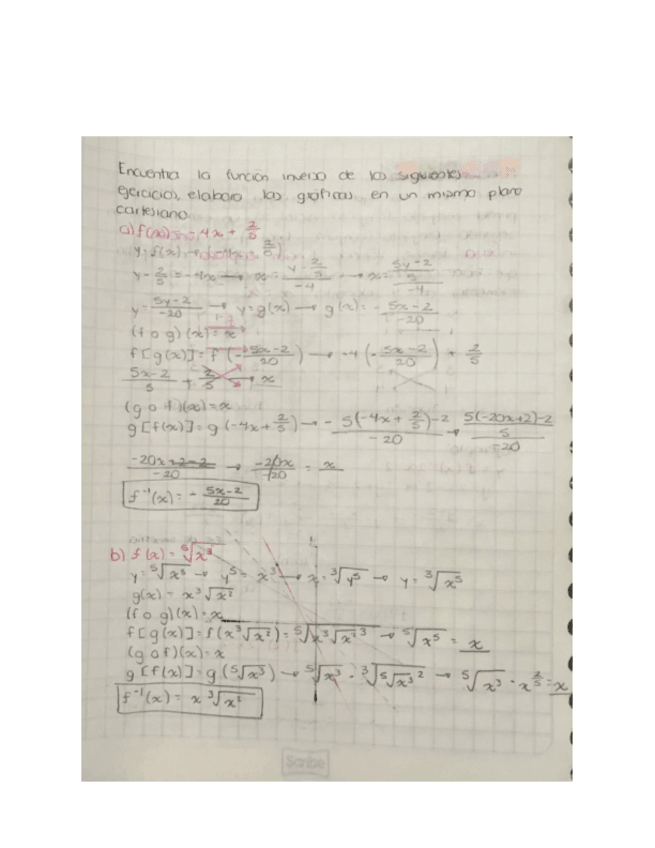 Encuentra la función inversa de los siguientes
ejercicios, elabora las gráficas en un mismo plano
cartesiano
a) f(x) = -4x + 2/5
y = f(x) → y = -4x + 2/5
y - 2/5 = -4x → x = (y - 2/5)/-4 → x = ((5y-2)/5)/-4
y = (5y-2)/-20 → y = g(x) → g(x) = - (5x-2)/-20
(f o g)(x) = x
f[g(x)] = f(-(5x-2)/20) → -4(-(5x-2)/20) + 2/5
(5x-2)/5 + 2/5 → x
(g o f)(x) = x
g[f(x)] = g(-4x + 2/5) → - (5(-4x + 2/5) - 2)/-20 → (5(-20x+2)-2)/5/-20
(-20x+2-2)/-20 → -20x/-20 = x
f⁻¹(x) = - (5x-2)/20
b) f(x) = ⁵√x³
y = ⁵√x³ → y⁵ = x³ → x = ³√y⁵ → y = ³√x⁵
g(x) = x ³√x²
(f o g)(x) = x
f[g(x)] = f(x ³√x²) = ⁵√x³ √x² ³ → ⁵√x⁵ = x
(g o f)(x) = x
g[f(x)] = g(⁵√x³) → ⁵√x³ · ³√⁵√x³ ² → ⁵√x³ · x^(2/5) = x
f⁻¹(x) = x ³√x²
Scribe